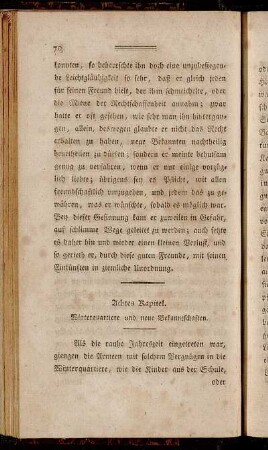 70
konnten, so beherrschte ihn doch eine unzubesiegen-
de Leichtgläubigkeit so sehr, daß er gleich jeden
für seinen Freund hielt, der ihm schmeichelte, oder
die Miene der Rechtschaffenheit annahm; zwar
hatte er oft gesehen, wie sehr man ihn hintergan-
gen, allein, deswegen glaubte er nicht das Recht
erhalten zu haben, von Bekannten nachtheilig
beurtheilen zu dürfen, sondern er meinte behutsam
genug zu verfahren, wenn er nur einige vorzüg-
lich liebte; übrigens sey es Pflicht, mit allen
freundschaftlich umzugehen, und jedem das zu ge-
währen, was er wünschte, sobald es möglich war.
Bey dieser Gesinnung kam er zuweilen in Gefahr,
auf schlimme Wege geleitet zu werden; auch setzte
es daher hin und wieder einen kleinen Verlust, und
so gerieth er, durch diese guten Freunde, mit seinen
Einkünften in ziemliche Unordnung.
Achtes Kapitel.
Winterquartiere und neue Bekanntschaften.
Als die rauhe Jahreszeit eingetreten war,
giengen die Armeen mit solchem Vergnügen in die
Winterquartiere, wie die Kinder aus der Schule,
oder